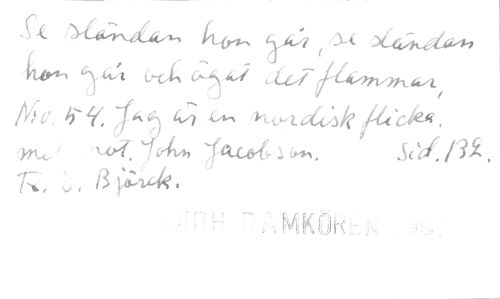 Se sländan hon går, se sländan
hon går och ögat det flammar,
No. 54. Jag är en nordisk flicka.
not. John Jacobson. Sid. 132.
Björck.
DAMKÖREN